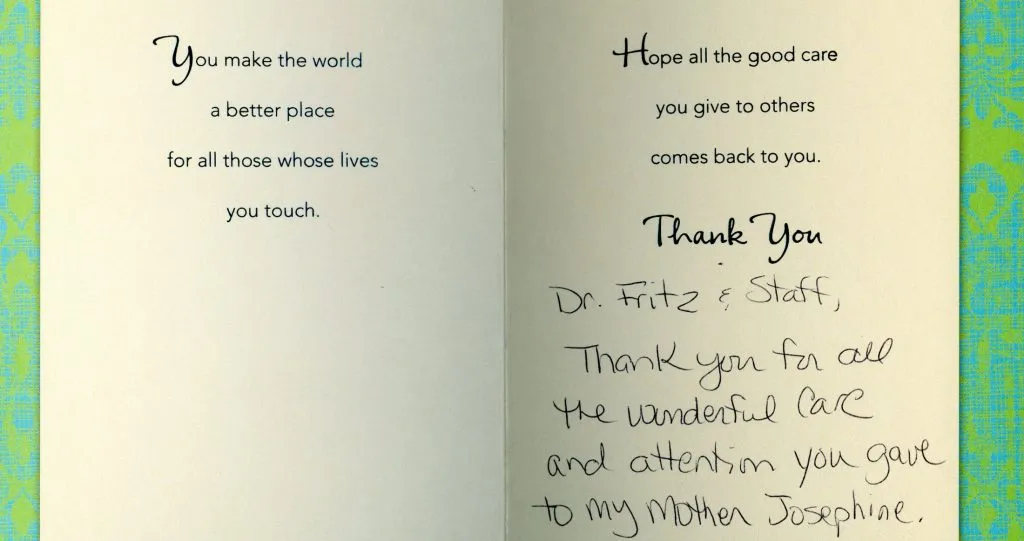 You make the world
a better place
for all those whose lives
you touch.
Hope all the good care
you give to others
comes back to you.
Thank You
Dr. Fritz & Staff,
Thank you for all
the wonderful Care
and attention you gave
to my Mother Josephine.